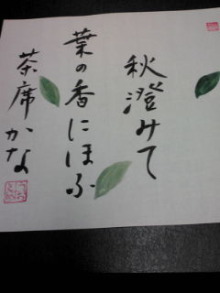 秋澄みて
葉の香にほふ
茶席かな